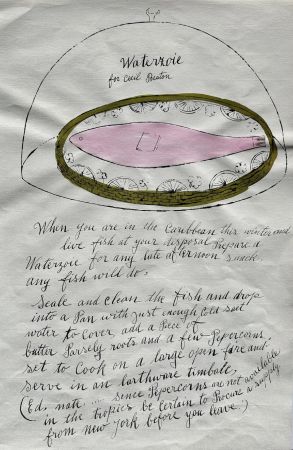 Waterzoie
for Cecil Beaton
When you are in the Caribbean this winter and
live fish at your disposal Prepare a
Waterzoie for any late afternoon snack.
any fish will do.
Scale and clean the fish and drop
into a Pan with Just enough Cold salt
water to Cover add a Piece of
butter Parsely roots and a few Pepercorns
set to Cook on a large open fire and-
serve in an Earthware timbale,
(Ed, note .... since Pepercorns are not available
in the tropics be Certain to Procure a supply
from New York before you leave.)